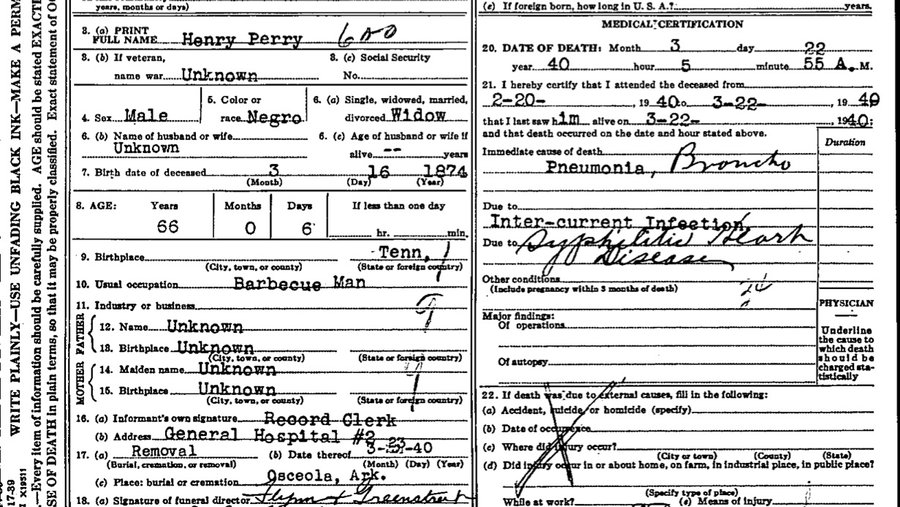 WRITE PLAINLY—USE UNFADING BLACK INK—MAKE A PERM
.—Every item of information should be carefully supplied. AGE should be stated EXACT
SE OF DEATH in plain terms, so that it may be properly classified. Exact statement of OC
17-39
I X19511
years, months or days)
3. (a) PRINT
FULL NAME Henry Perry 600
3. (b) If veteran,
name war Unknown
3. (c) Social Security
No.
4. Sex Male
5. Color or
race Negro
6. (a) Single, widowed, married,
divorced Widow
6. (b) Name of husband or wife
Unknown
6. (c) Age of husband or wife if
alive -- years
7. Birth date of deceased 3 16 1874
(Month) (Day) (Year)
8. AGE: Years Months Days If less than one day
66 0 6 hr. min.
9. Birthplace Tenn,
(City, town, or county) (State or foreign country)
10. Usual occupation Barbecue Man
11. Industry or business
FATHER
12. Name Unknown
13. Birthplace Unknown
(City, town, or county) (State or foreign country)
MOTHER
14. Maiden name Unknown
15. Birthplace Unknown
(City, town, or county) (State or foreign country)
16. (a) Informant's own signature Record Clerk
(b) Address General Hospital #2
17. (a) Removal (b) Date thereof 3-23-40
(Burial, cremation, or removal) (Month) (Day) (Year)
(c) Place: burial or cremation Osceola, Ark.
18. (a) Signature of funeral director Flynn & Greenstreet
(e) If foreign born, how long in U. S. A.? years.
MEDICAL CERTIFICATION
20. DATE OF DEATH: Month 3 day 22
year 40 hour 5 minute 55 A. M.
21. I hereby certify that I attended the deceased from
2-20- , 1940 to 3-22- , 1940
that I last saw him alive on 3-22- , 1940:
and that death occurred on the date and hour stated above.
Duration
Immediate cause of death
Pneumonia, Broncho
Due to
Inter-current Infection
Due to Syphilitic Heart
Disease
Other conditions
(Include pregnancy within 3 months of death)
Major findings:
Of operations
Of autopsy
PHYSICIAN
Underline
the cause to
which death
should be
charged sta-
tistically
22. If death was due to external causes, fill in the following:
(a) Accident, suicide, or homicide (specify)
(b) Date of occurrence
(c) Where did injury occur?
(City or town) (County) (State)
(d) Did injury occur in or about home, on farm, in industrial place, in public place?
(Specify type of place)
While at work? (e) Means of injury